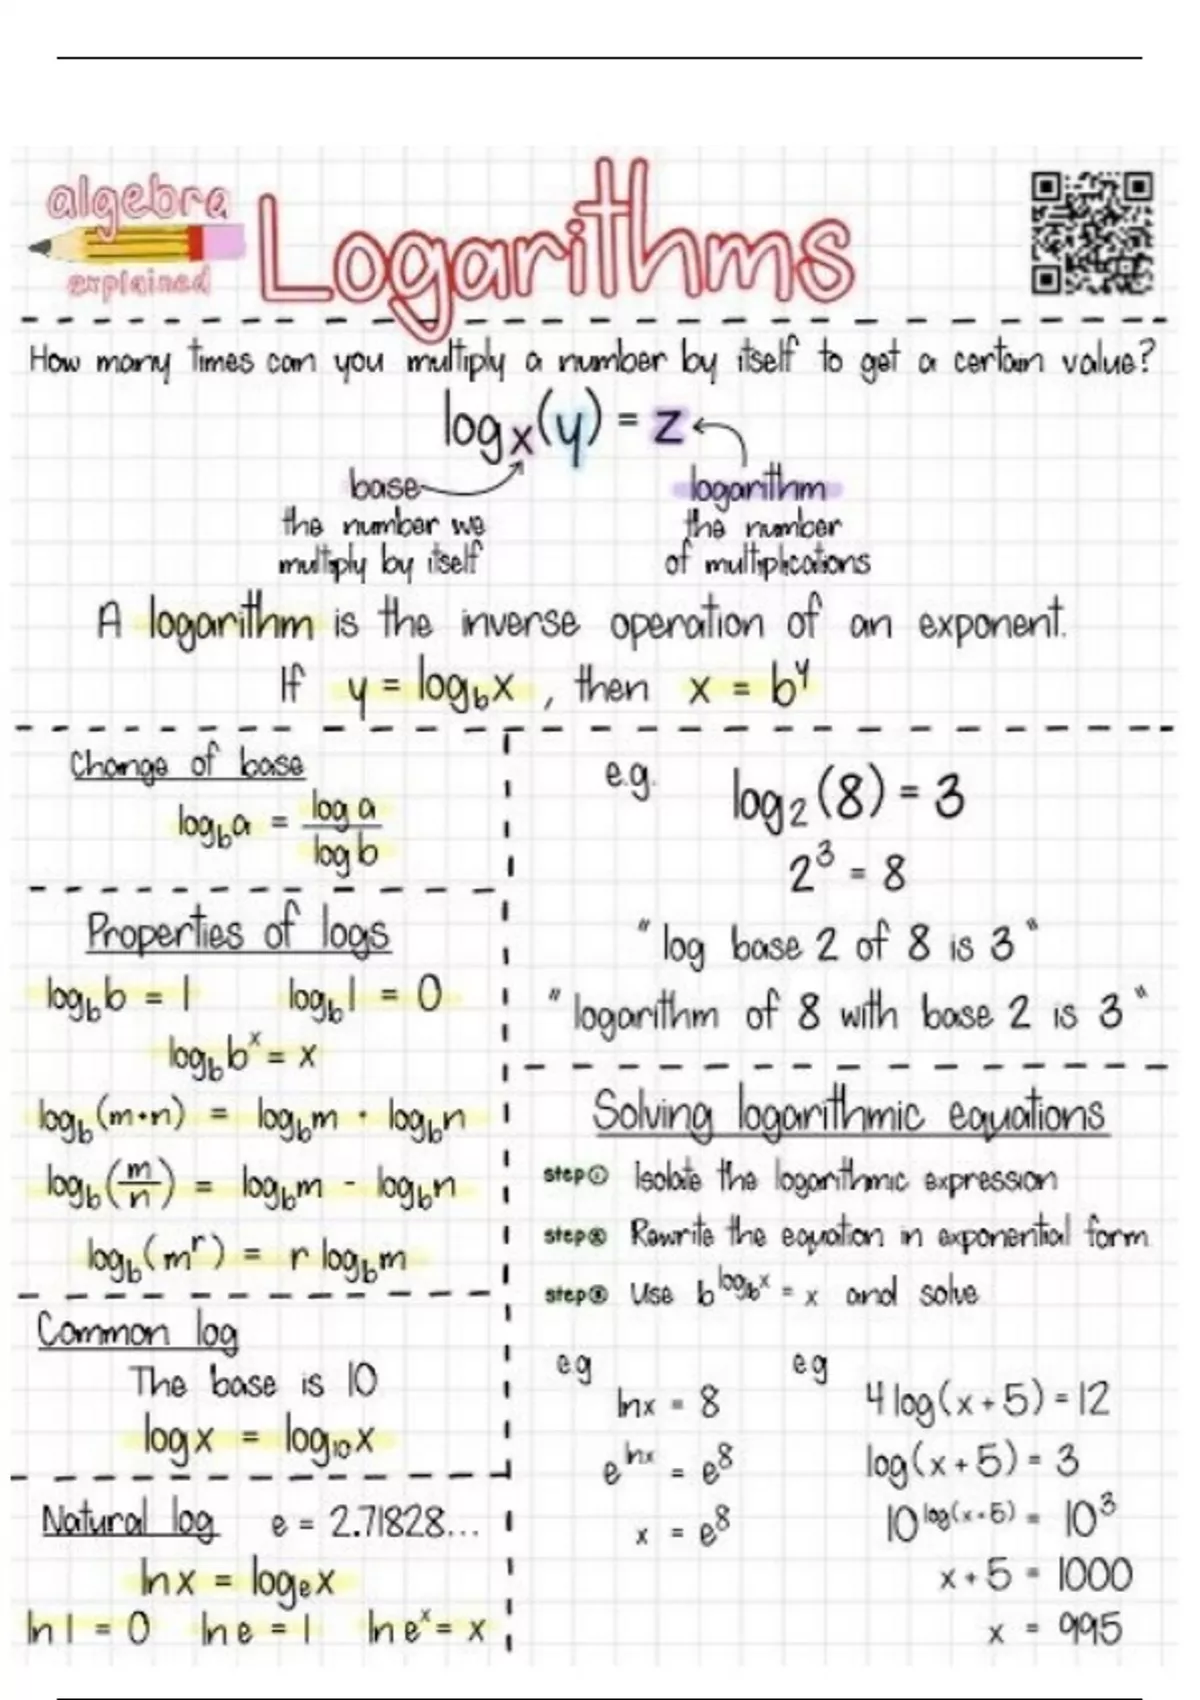 algebra
explained
Logarithms
How many times can you multiply a number by itself to get a certain value?
logₓ(y) = z
base
the number we
multiply by itself
logarithm
the number
of multiplications
A logarithm is the inverse operation of an exponent.
If y = log_b x , then x = b^y
Change of base
log_b a = log a / log b
Properties of logs
log_b b = 1 log_b 1 = 0
log_b b^x = x
log_b (m·n) = log_b m · log_b n
log_b (m/n) = log_b m - log_b n
log_b (m^r) = r log_b m
Common log
The base is 10
log x = log₁₀ x
Natural log e = 2.71828...
ln x = logₑ x
ln 1 = 0 ln e = 1 ln e^x = x
e.g. log₂(8) = 3
2³ = 8
"log base 2 of 8 is 3"
"logarithm of 8 with base 2 is 3"
Solving logarithmic equations
step ① Isolate the logarithmic expression
step ② Rewrite the equation in exponential form
step ③ Use b^(log_b x) = x and solve
eg
ln x = 8
e^(ln x) = e⁸
x = e⁸
eg
4 log(x + 5) = 12
log(x + 5) = 3
10^(log(x+5)) = 10³
x + 5 = 1000
x = 995